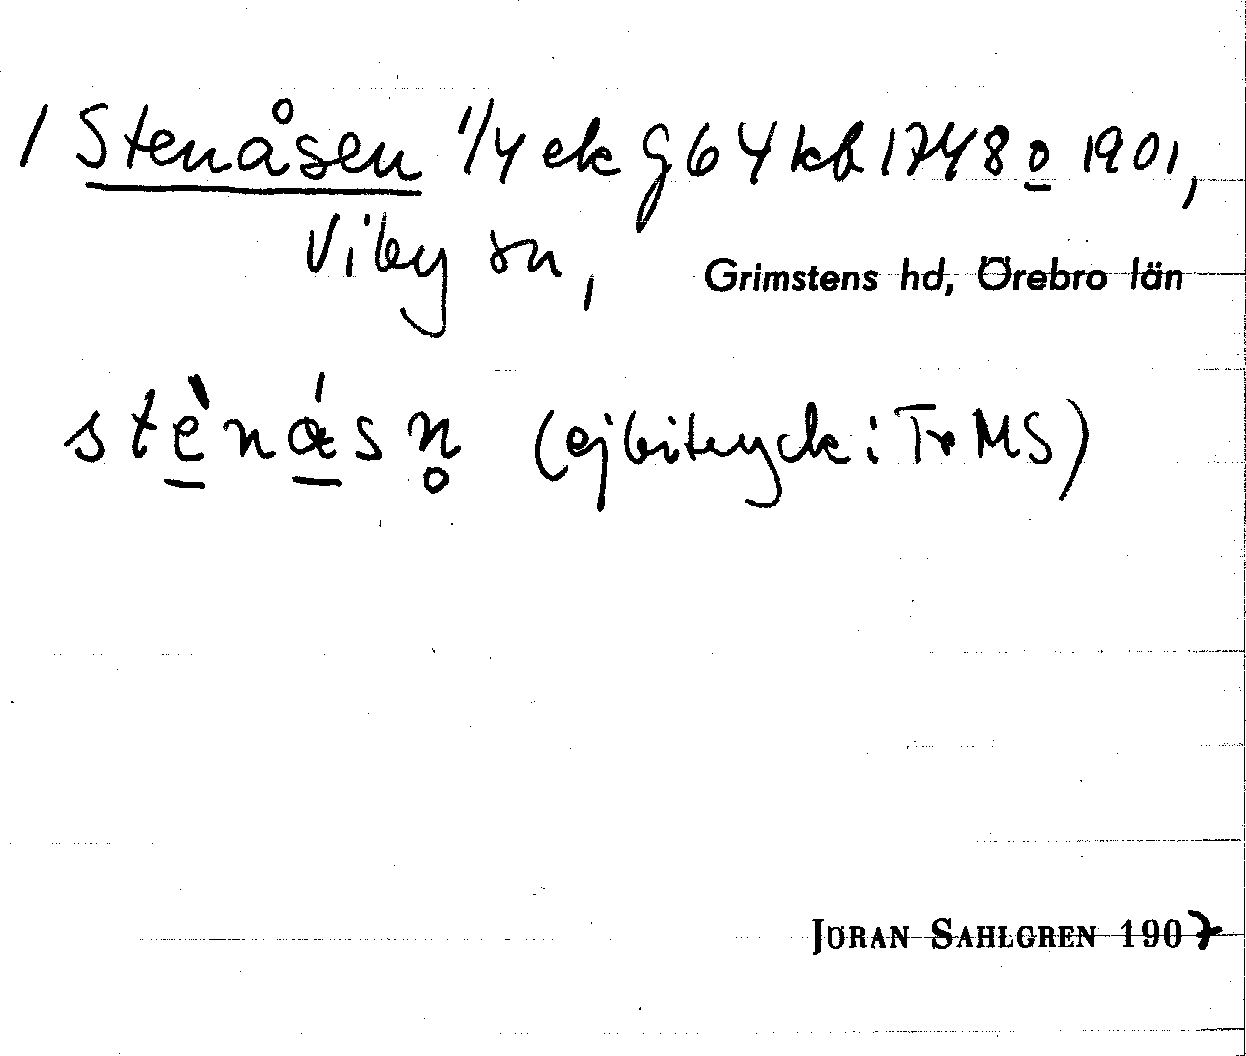 / Stenåsen 1/4 ek G 64 kb 1748 o 1901,
Viby sn, Grimstens hd, Örebro län
stènásn̥ (ej bitryck i Tr MS)
JÖRAN SAHLGREN 1907